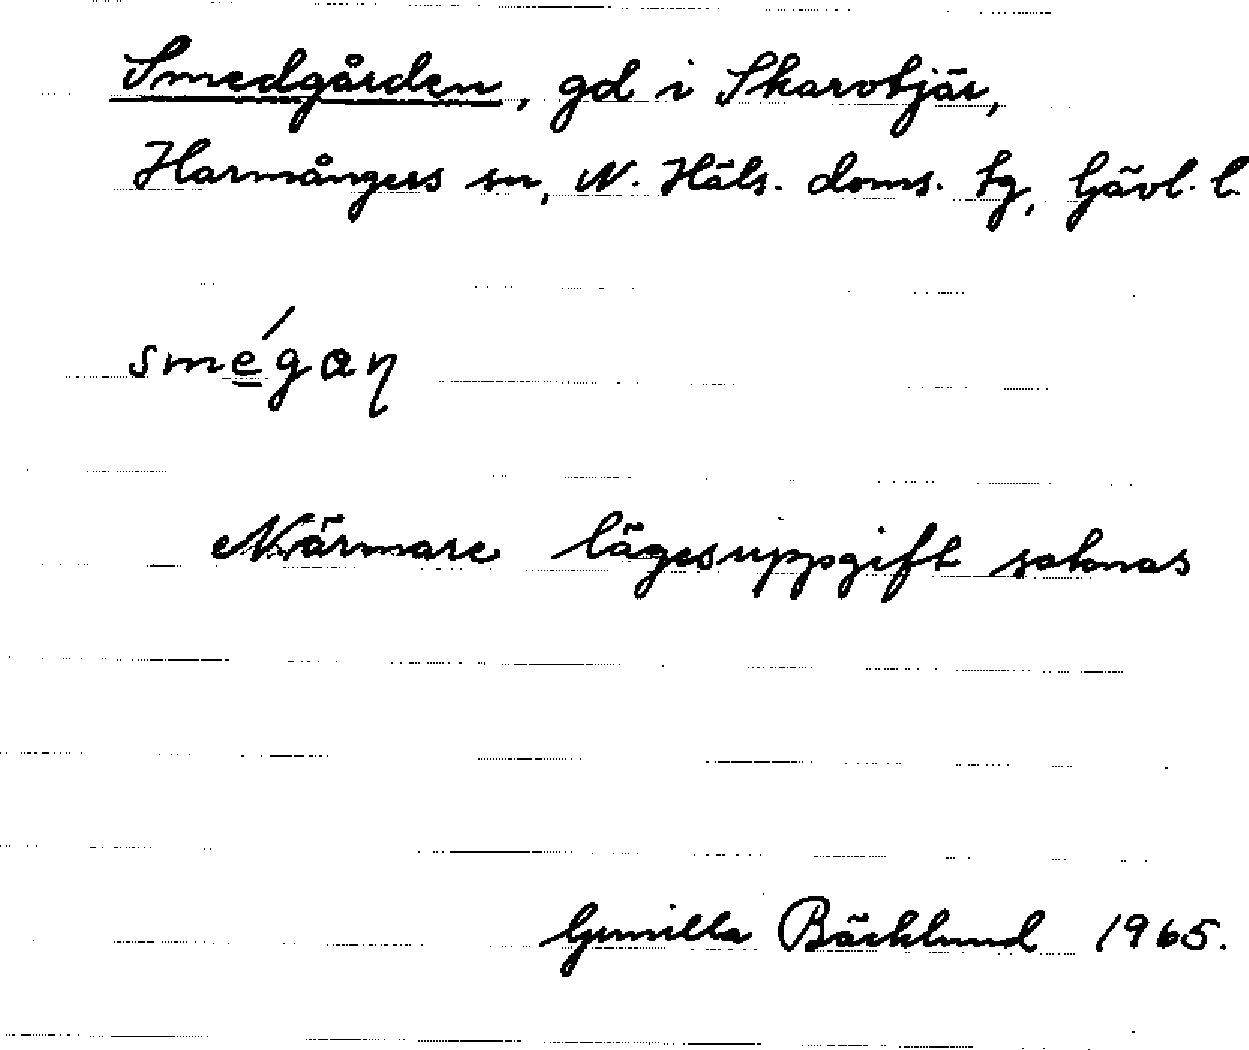 Smedgården, gd i Skarvtjär,
Harmångers sn, N. Häls. doms. tg, Gävl. l.
smégaɳ
Närmare lägesuppgift saknas
Gunilla Bäcklund 1965.